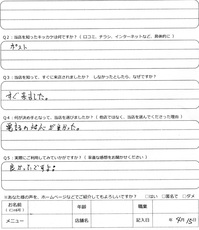 Q2:当店を知ったキッカケは何ですか?(口コミ、チラシ、インターネットなど、具体的に)
Q3:当店を知って、すぐに来店されましたか? しなかったとしたら、なぜですか?
すぐ来ました。
Q4:何が決めてとなって、当店を選びましたか?(他店ではなく、当店を選んでくださった理由)
電話の対応が良かった。
Q5:実際にご利用してみていかがですか?(率直な感想をお聞かせください)
良かったですよ!
※あなた様の声を、ホームページなどでご紹介してもよろしいですか? □はい □匿名で □ダメ
お名前
年齢
職業
メニュー
店舗名
記入日